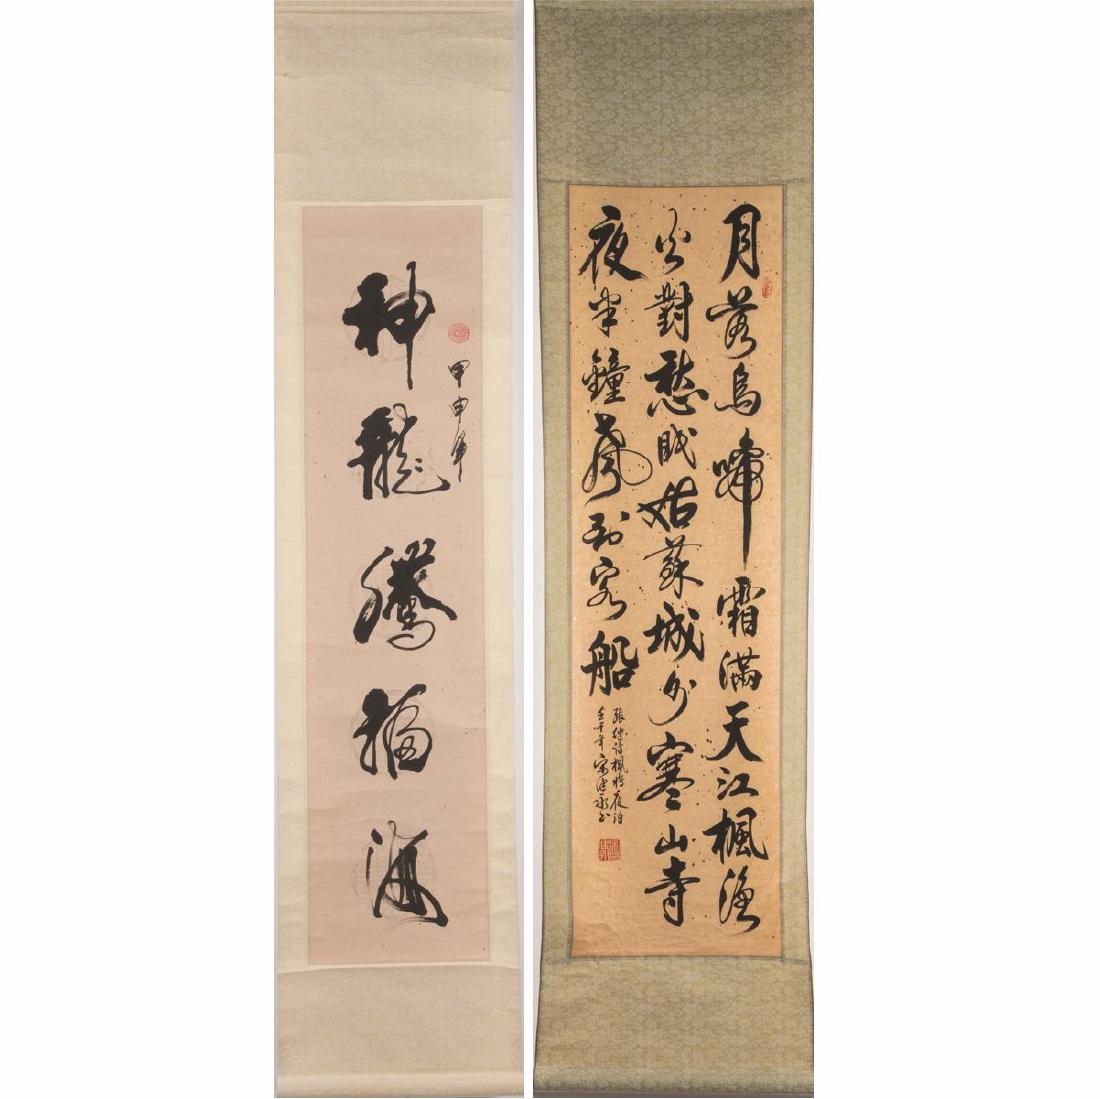 神龍騰福海
甲申年
月落烏啼霜滿天江楓漁
火對愁眠姑蘇城外寒山寺
夜半鐘聲到客船
張继詩楓橋夜泊